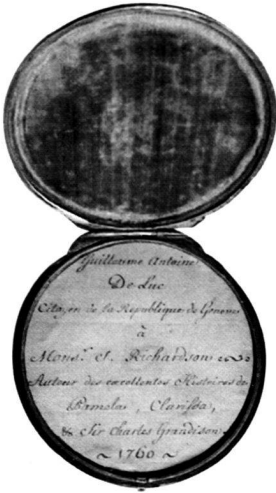 Guillaume Antoine
De Luc
Citoyen de la Republique de Geneve
à
Monsr. S. Richardson
Auteur des excellentes Histoires de
Pamela, Clarissa,
& Sir Charles Grandison
~ 1760 ~